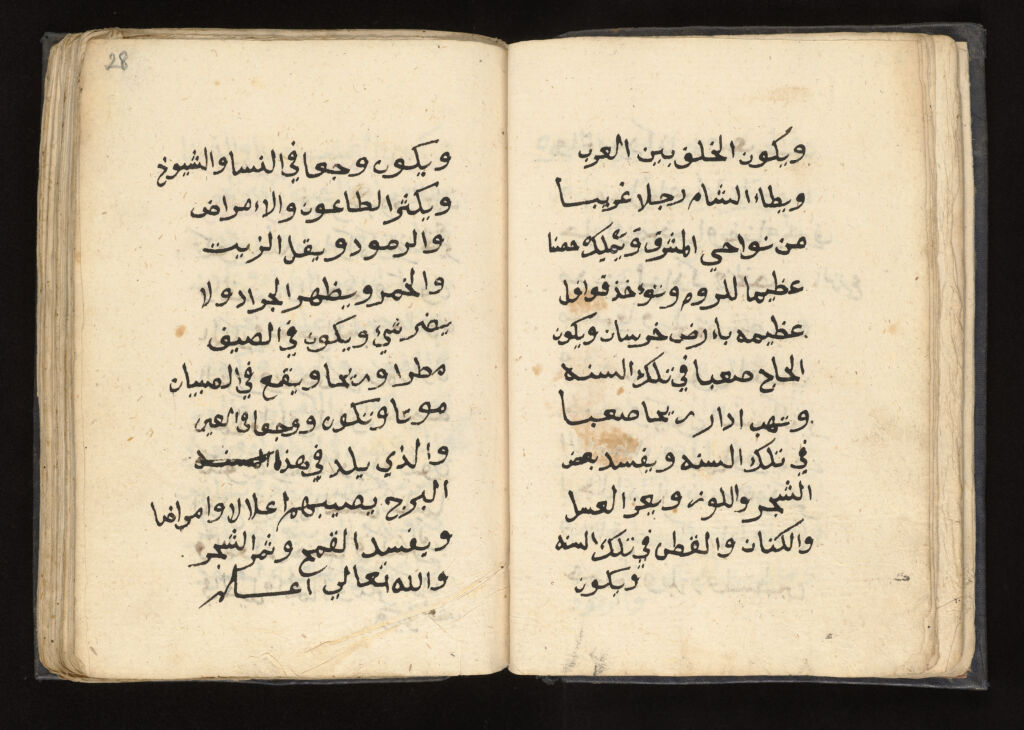 ويكون الخلق بين العرب
ويطاء الشام رجلا غريبا
من نواحي المشرق ويتملك حصنا
عظيما للروم وتوءخذ قوافل
عظيمه باءرض خرسان ويكون
الحاج صعبا في تلك السنه
وتهب ادار ريحا صعبا
في تلك السنه ويفسد بعض
الشجر واللوز ويعز العسل
والكتان والقطن في تلك السنه
ويكون
28
ويكون وجعا في النسا والشيوخ
ويكثر الطاعون والاءمراض
والرمود ويقل الزيت
والخمر ويظهر الجراد ولا
يضر شيء ويكون في الصيف
مطرا وريحا ويقع في الصبيان
موتا وتكون ووجعا في العين
والذي يلد في هذا السنه
البرج يصيبهم اعلالا وامراضا
ويفسد القمح وثمر الشجر
والله تعالي اعلم